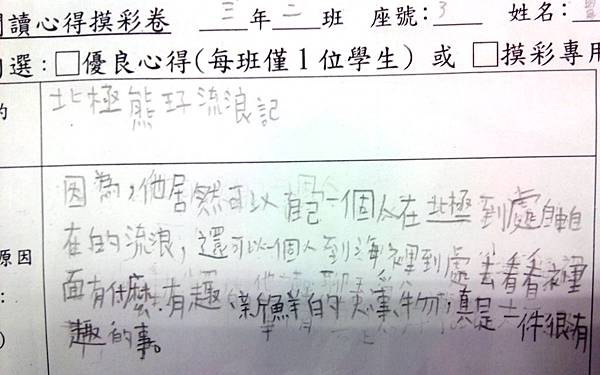 讀心得摸彩卷 三年二班 座號:3 姓名:
選:□優良心得(每班僅1位學生) 或 □摸彩專用
的
北極熊玗流浪記
原因
:
)
因為,他居然可以自己一個人在北極到處自由自
在的流浪,還可以一個人到海裡到處去看看裡
面有什麼有趣、新鮮的事物,真是一件很有
趣的事。